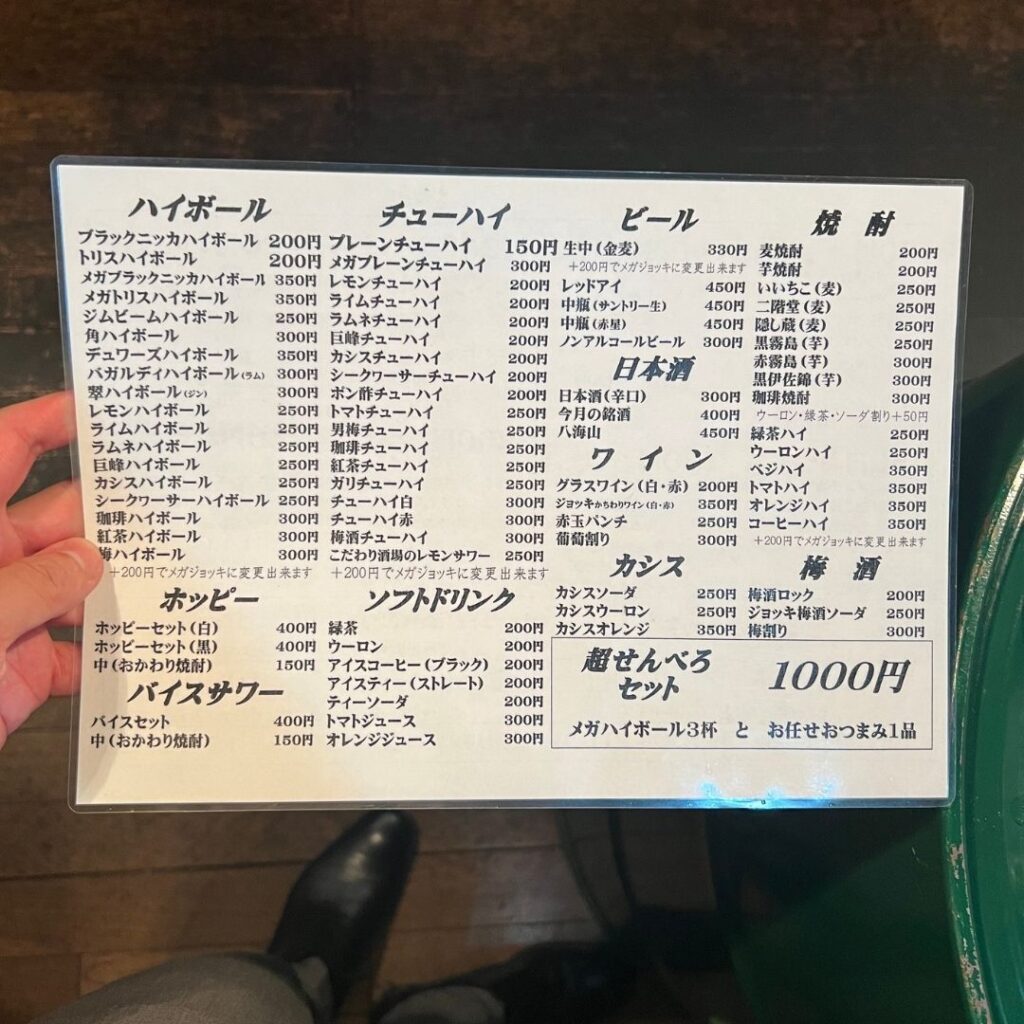 ハイボール
ブラックニッカハイボール 200円
トリスハイボール 200円
メガブラックニッカハイボール 350円
メガトリスハイボール 350円
ジムビームハイボール 250円
角ハイボール 300円
デュワーズハイボール 350円
バガルディハイボール(ラム) 300円
翠ハイボール(ジン) 300円
レモンハイボール 250円
ライムハイボール 250円
ラムネハイボール 250円
巨峰ハイボール 250円
カシスハイボール 250円
シークヮーサーハイボール 250円
珈琲ハイボール 300円
紅茶ハイボール 300円
梅ハイボール 300円
+200円でメガジョッキに変更出来ます
ホッピー
ホッピーセット(白) 400円
ホッピーセット(黒) 400円
中(おかわり焼酎) 150円
バイスサワー
バイスセット 400円
中(おかわり焼酎) 150円
チューハイ
プレーンチューハイ 150円
メガプレーンチューハイ 300円
レモンチューハイ 200円
ライムチューハイ 200円
ラムネチューハイ 200円
巨峰チューハイ 200円
カシスチューハイ 200円
シークヮーサーチューハイ 200円
ポン酢チューハイ 200円
トマトチューハイ 200円
男梅チューハイ 250円
珈琲チューハイ 250円
紅茶チューハイ 250円
ガリチューハイ 250円
チューハイ白 300円
チューハイ赤 300円
梅酒チューハイ 300円
こだわり酒場のレモンサワー 250円
+200円でメガジョッキに変更出来ます
ソフトドリンク
緑茶 200円
ウーロン 200円
アイスコーヒー(ブラック) 200円
アイスティー(ストレート) 200円
ティーソーダ 200円
トマトジュース 300円
オレンジジュース 300円
ビール
生中(金麦) 330円
+200円でメガジョッキに変更出来ます
レッドアイ 450円
中瓶(サントリー生) 450円
中瓶(赤星) 450円
ノンアルコールビール 300円
日本酒
日本酒(辛口) 300円
今月の銘酒 400円
八海山 450円
ワイン
グラスワイン(白・赤) 200円
ジョッキかちわりワイン(白・赤) 350円
赤玉パンチ 250円
葡萄割り 300円
カシス
カシスソーダ 250円
カシスウーロン 250円
カシスオレンジ 350円
焼酎
麦焼酎 200円
芋焼酎 200円
いいちこ(麦) 250円
二階堂(麦) 250円
隠し蔵(麦) 250円
黒霧島(芋) 250円
赤霧島(芋) 300円
黒伊佐錦(芋) 300円
珈琲焼酎 300円
ウーロン・緑茶・ソーダ割り+50円
緑茶ハイ 250円
ウーロンハイ 250円
ベジハイ 350円
トマトハイ 350円
オレンジハイ 350円
コーヒーハイ 350円
+200円でメガジョッキに変更出来ます
梅酒
梅酒ロック 200円
ジョッキ梅酒ソーダ 250円
梅割り 300円
超せんべろ
セット
1000円
メガハイボール3杯 と お任せおつまみ1品